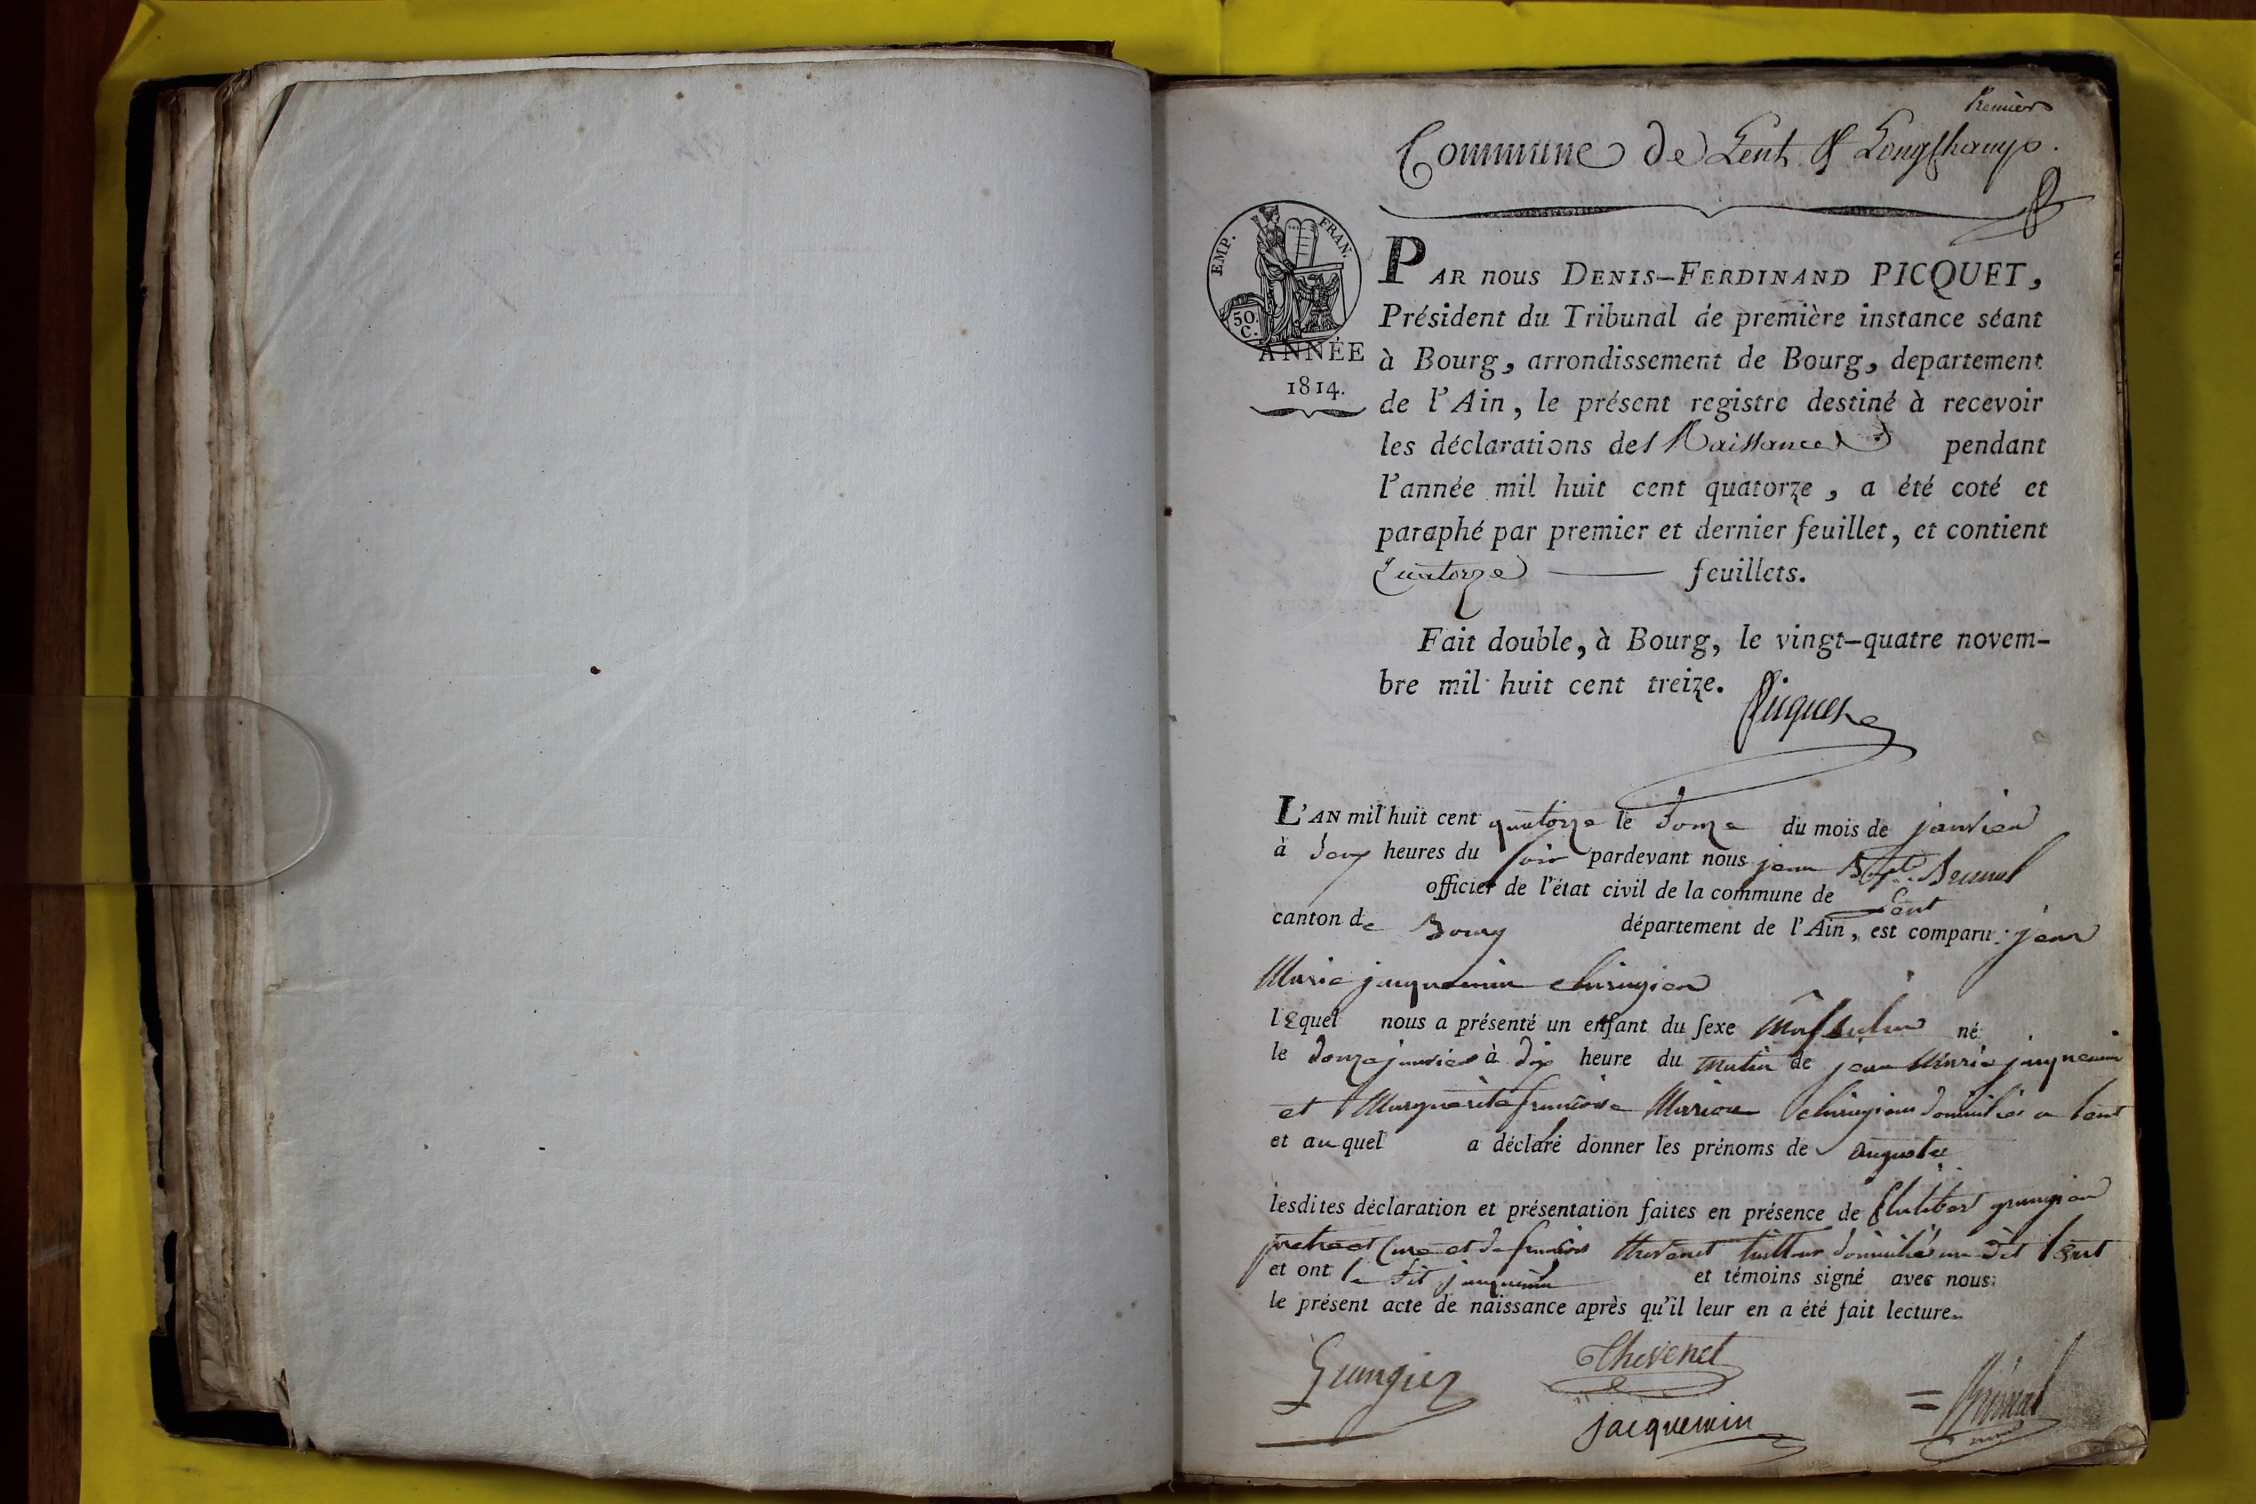 Premier
Commune de Lent & Longchamps.
EMP. FRAN.
50. C.
ANNÉE
1814.
PAR nous DENIS-FERDINAND PICQUET,
Président du Tribunal de première instance séant
à Bourg, arrondissement de Bourg, departement
de l'Ain, le présent registre destiné à recevoir
les déclarations des Naissances pendant
l'année mil huit cent quatorze, a été coté et
paraphé par premier et dernier feuillet, et contient
quatorze feuillets.
Fait double, à Bourg, le vingt-quatre novem-
bre mil huit cent treize.
Picquet
L'AN mil huit cent quatorze le douze du mois de janvier
à deux heures du soir pardevant nous jean Bapte
officier de l'état civil de la commune de Lent
canton de Bourg département de l'Ain, est comparu jean
Marie jacquemin chirugien
lequel nous a présenté un enfant du sexe Masculin né
le douze janvier à dix heure du matin de jean Marie jacquemin
et Marguerite françoise Marion chirugien domiciliés a Lent
et auquel a déclaré donner les prénoms de auguste
lesdites déclaration et présentation faites en présence de
pretre et Curé et de françois thevenet domiciliés au dit Lent
et ont le dit jacquemin et témoins signé avec nous
le présent acte de naissance après qu'il leur en a été fait lecture.
Thevenet
jacquemin